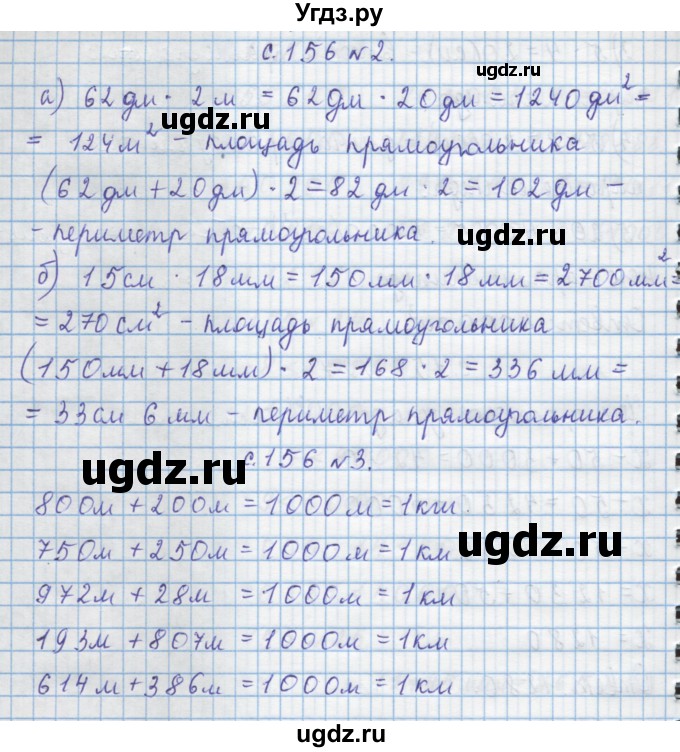 Угдз.ру
с. 156 №2.
а) 62 дм · 2 м = 62 дм · 20 дм = 1240 дм² =
= 124 м² - площадь прямоугольника
(62 дм + 20 дм) · 2 = 82 дм · 2 = 102 дм -
- периметр прямоугольника.
б) 15 см · 18 мм = 150 мм · 18 мм = 2700 мм² =
= 270 см² - площадь прямоугольника
(150 мм + 18 мм) · 2 = 168 · 2 = 336 мм =
= 33 см 6 мм - периметр прямоугольника.
с. 156 №3.
800 м + 200 м = 1000 м = 1 км.
750 м + 250 м = 1000 м = 1 км
972 м + 28 м = 1000 м = 1 км
193 м + 807 м = 1000 м = 1 км
614 м + 386 м = 1000 м = 1 км
ugdz.ru
ugdz.ru
ugdz.ru
ugdz.ru
ugdz.ru
ugdz.ru
ugdz.ru
ugdz.ru